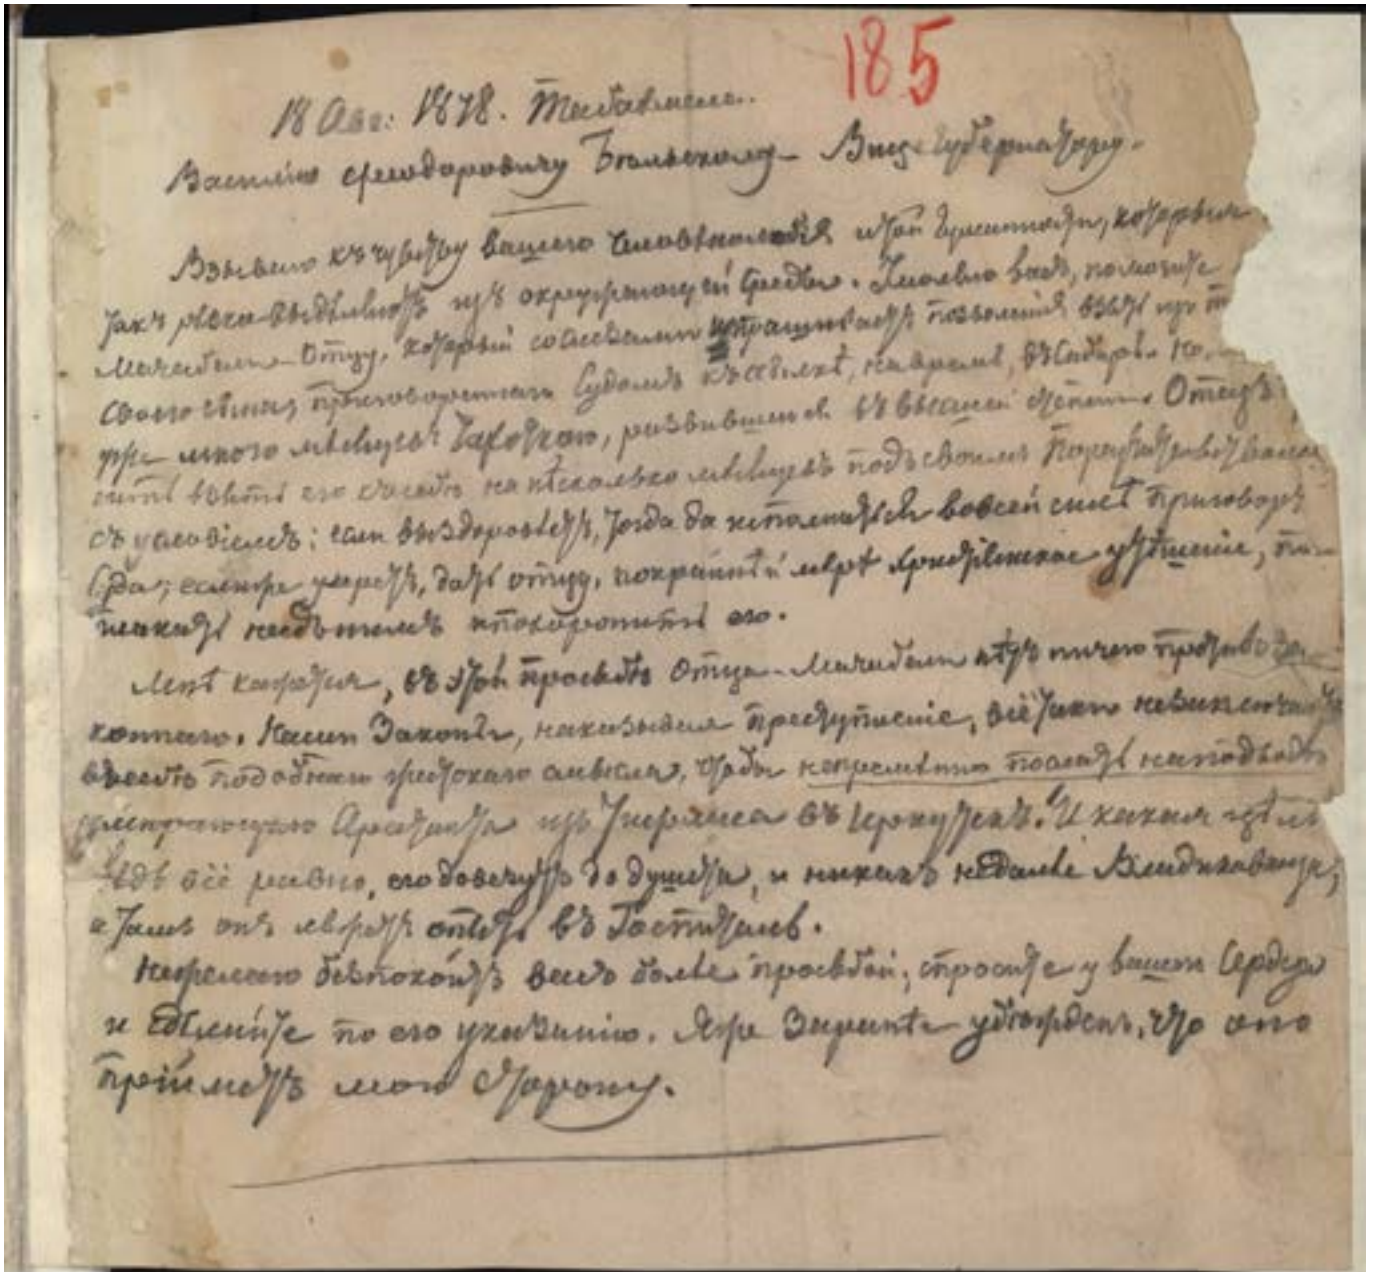 185
18 Авг: 1878.
Василію Ѳеодоровичу Бѣльскому Вице-Губернатору.
Взываю къ чувству вашего человѣколюбія и той гуманности, которыя
такъ рѣзко выдѣляютъ изъ окружающей среды. Умоляю васъ, помогите
Мачабели Отцу, который со слезами испрашиваетъ позволенія взять изъ
своего сына, приговореннаго Судомъ къ ссылкѣ, на время, въ Сибирь.
уже много мѣсяцевъ Чахоткою, развившеюся въ высшей степени. Отецъ
взять его къ себѣ на нѣсколько мѣсяцевъ подъ своимъ
съ условіемъ: если выздоровѣетъ, тогда да исполнится во всей силѣ приговоръ
Суда; если же умретъ, дать отцу, по крайнѣй мѣрѣ Христіанское утѣшеніе,
плакать надъ нимъ и похоронить его.
Мнѣ кажется, въ этой просьбѣ Отца Мачабели нѣтъ ничего противоза-
коннаго. Наши Законы, наказывая преступленіе, всё таки не заключаютъ
въ себѣ подобнаго жестокаго смысла, чтобы непремѣнно послать на подводѣ
умирающаго Арестанта изъ Тифлиса въ Иркутскъ. И какая цѣль
Вѣдь всё равно, его довезутъ до Душета, и никакъ не далѣе Владикавказа,
а тамъ онъ ляжетъ опять въ Госпиталь.
Не желаю безпокоить васъ болѣе просьбой, спросите у вашего Сердца
и сдѣлайте по его указанію. Я же Заранѣе убѣжденъ, что оно
приметъ мою сторону.